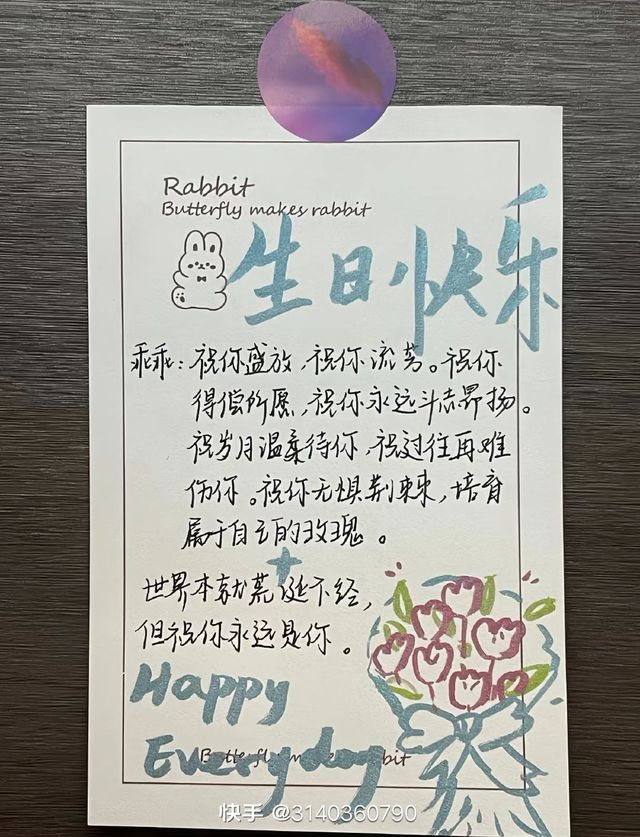 Rabbit
Butterfly makes rabbit
生日快乐
乖乖：祝你盛放，祝你流芳。祝你
得偿所愿，祝你永远斗志昂扬。
祝岁月温柔待你，祝过往再难
伤你。祝你无惧荆棘，培育
属于自己的玫瑰。
世界本就荒诞不经，
但祝你永远是你。
Happy
Everyday
Butterfly makes rabbit
快手 @3140360790